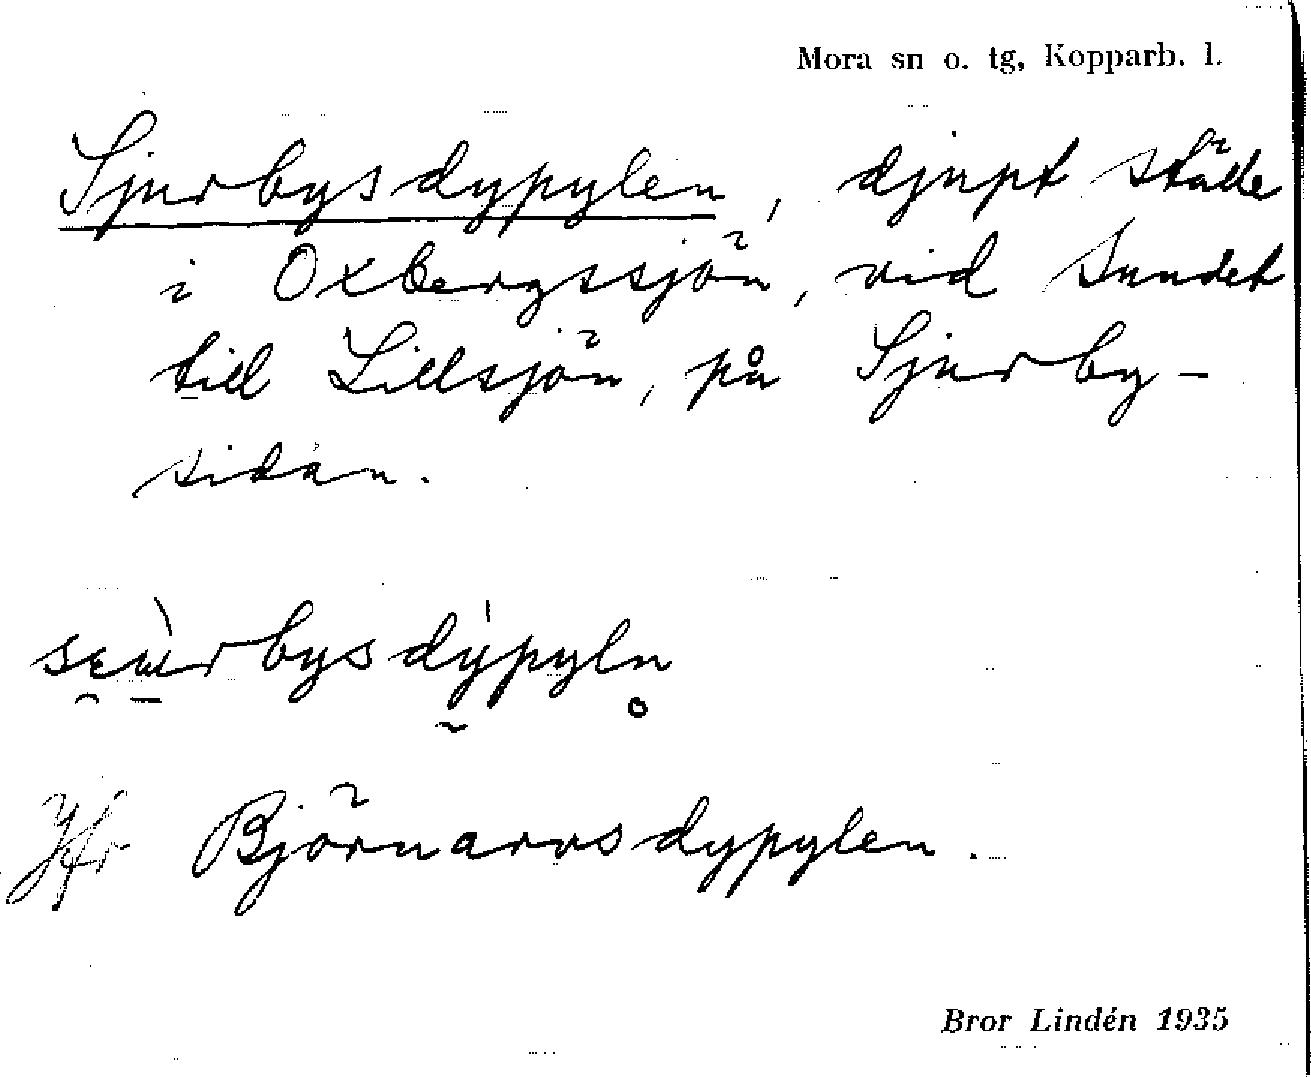 Mora sn o. tg, Kopparb. l.
Sjurbysdypylen, djupt ställe
i Oxbergssjön, vid sundet
till Lillsjön, på Sjurby-
sidan.
Jfr Björnarvsdypylen.
Bror Lindén 1935